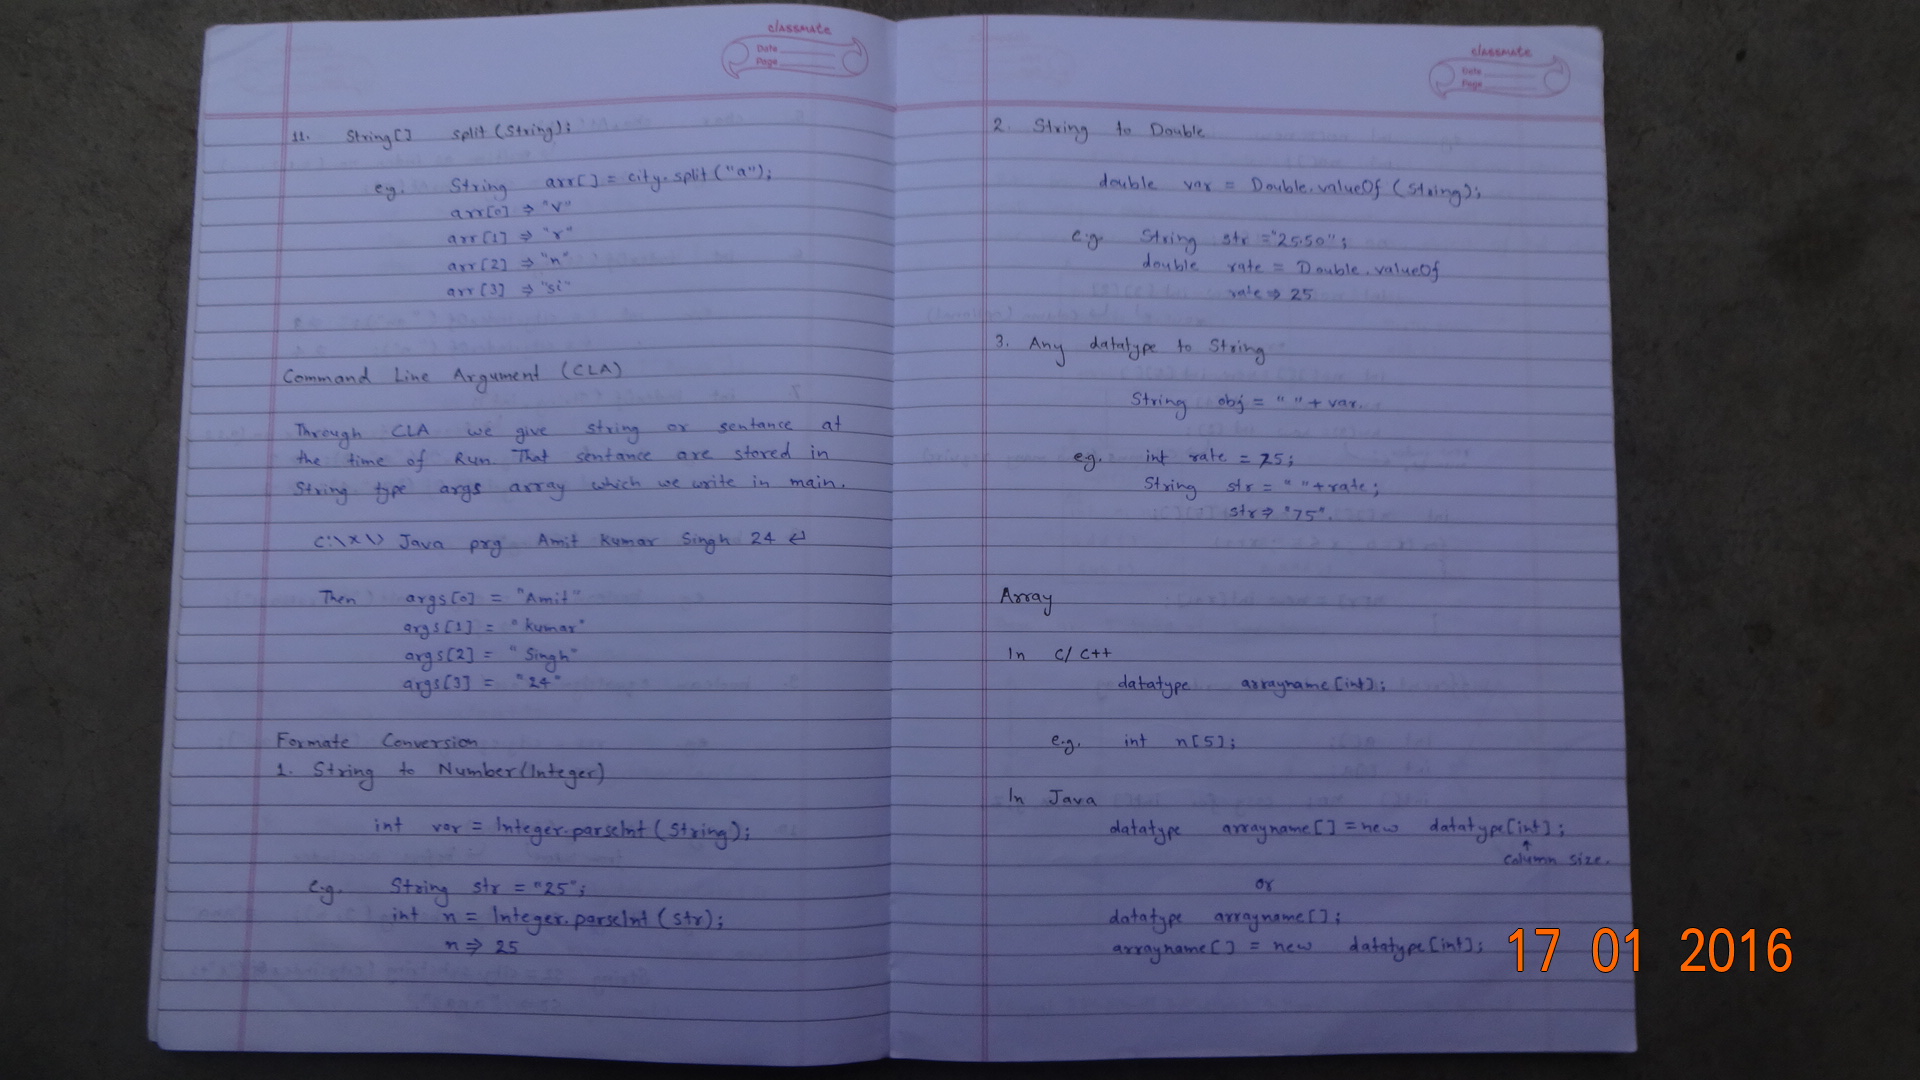 classmate
Date
Page
11. String[] split(String);
eg. String arr[] = city.split("a");
arr[0] ⇒ "V"
arr[1] ⇒ "r"
arr[2] ⇒ "n"
arr[3] ⇒ "si"
Command Line Argument (CLA)
Through CLA we give string or sentance at
the time of Run. That sentance are stored in
String type args array which we write in main.
C:\X\> Java prg Amit Kumar Singh 24 ↵
Then args[0] = "Amit"
args[1] = "Kumar"
args[2] = "Singh"
args[3] = "24"
Formate Conversion
1. String to Number(Integer)
int var = Integer.parseInt(String);
e.g. String str = "25";
int n = Integer.parseInt(str);
n ⇒ 25
classmate
Date
Page
2. String to Double
double var = Double.valueOf(String);
e.g. String str = "25.50";
double rate = Double.valueOf
rate ⇒ 25
3. Any datatype to String
String obj = " " + var.
eg. int rate = 75;
String str = " "+rate;
str ⇒ "75".
Array
In C/C++
datatype arrayname[int];
e.g. int n[5];
In Java
datatype arrayname[] = new datatype[int];
↑
Column size.
or
datatype arrayname[];
arrayname[] = new datatype[int];
17 01 2016